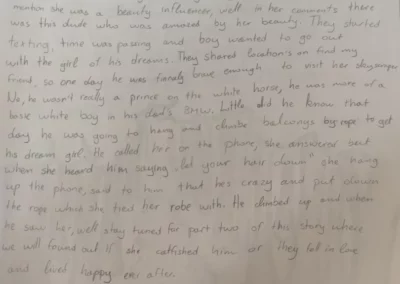 mention she was a beauty influencer, well in her comments there
was this dude who was amazed by her beauty. They started
texting, time was passing and boy wanted to go out
with the girl of his dreams. They shared location's on find my
friend, so one day he was finaly brave enough to visit her skyscraper
No, he wasn't really a prince on the white horse, he was more of a
basic white boy in his dad's BMW. Little did he know that
day he was going to hang and climbe balconys by rope to get
his dream girl. He called her on the phone, she answered but
when she heard him saying "let your hair down" she hang
up the phone, said to him that hes crazy and put down
the rope which she tied her robe with. He climbed up and when
he saw her, well stay tuned for part two of this story where
we will found out if she catfished him or they fall in love
and lived happy ever after.